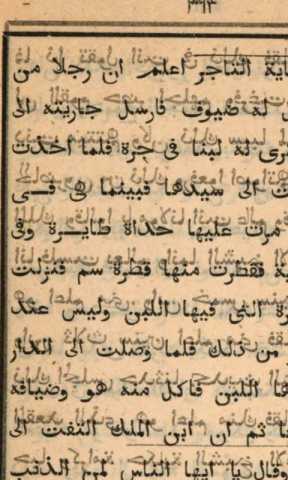 ٣٩٣
ـاية التاجر اعلم ان رجلا من
له ضيوف فارسل جاريته الى
ـرى له لبنا فى جرة فلما اخذت
ت الى سيدها فبينما هى فـــى
مرت عليها حداة طايــرة وفى
ـية فقطرت منها قطرة سم فنزلت
رة التى فيها اللبن وليس عند
من ذلك فلما وصلت الى الدار
ـها اللبن فاكل منه هو وضيافه
ـا ثم ان ابن الملك التفت الى
وقال يا ايها الناس لمن الذنب